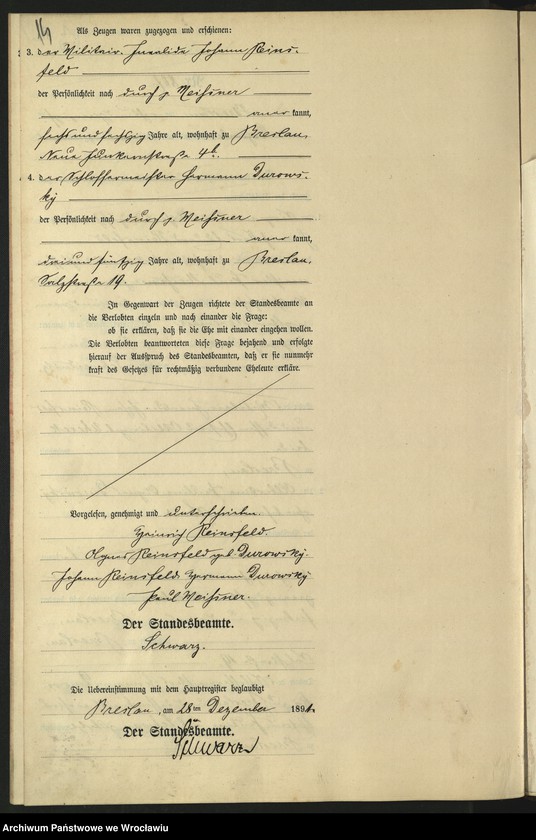 14
Als Zeugen waren zugezogen und erschienen:
3. der Militair-Invalide Johann Reins-
feld
der Persönlichkeit nach durch p Meißner
aner kannt,
sechs und sechszig Jahre alt, wohnhaft zu Breslau,
Neue Junkernstraße 4b.
4. der Schlossermeister Hermann Durows-
ky
der Persönlichkeit nach durch p Meißner
aner kannt,
drei und fünfzig Jahre alt, wohnhaft zu Breslau,
Salzstraße 19.
In Gegenwart der Zeugen richtete der Standesbeamte an
die Verlobten einzeln und nach einander die Frage:
ob sie erklären, daß sie die Ehe mit einander eingehen wollen.
Die Verlobten beantworteten diese Frage bejahend und erfolgte
hierauf der Ausspruch des Standesbeamten, daß er sie nunmehr
kraft des Gesetzes für rechtmäßig verbundene Eheleute erkläre.
Vorgelesen, genehmigt und unterschrieben.
Heinrich Reinsfeld.
Agnes Reinsfeld geb Durowsky.
Johann Reinsfeld. Hermann Durowsky
Paul Meißner.
Der Standesbeamte.
Schwarz.
Die Uebereinstimmung mit dem Hauptregister beglaubigt
Breslau, am 28 ten Dezember 1891.
Der Standesbeamte.
Schwarz
Archiwum Państwowe we Wrocławiu